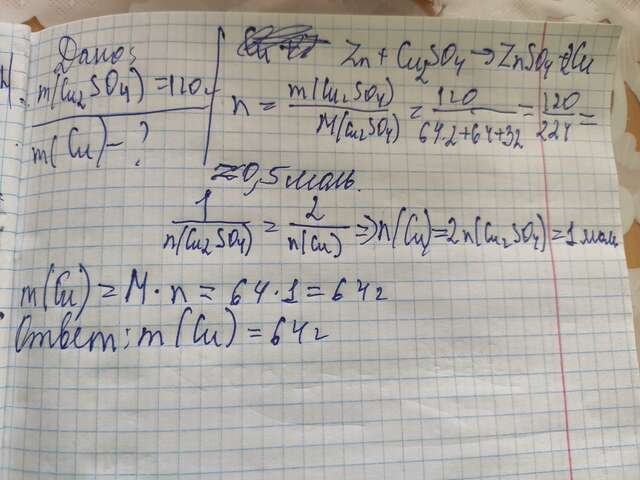 Дано:
m(Cu₂SO₄) = 120г
m(Cu) - ?
Zn + Cu₂SO₄ → ZnSO₄ + 2Cu
n = m(Cu₂SO₄) / M(Cu₂SO₄) = 120 / 64·2+64+32 = 120 / 224 =
≈ 0,5 моль.
1 / n(Cu₂SO₄) = 2 / n(Cu) => n(Cu) = 2n(Cu₂SO₄) = 1 моль
m(Cu) = M · n = 64 · 1 = 64г
Ответ: m(Cu) = 64г